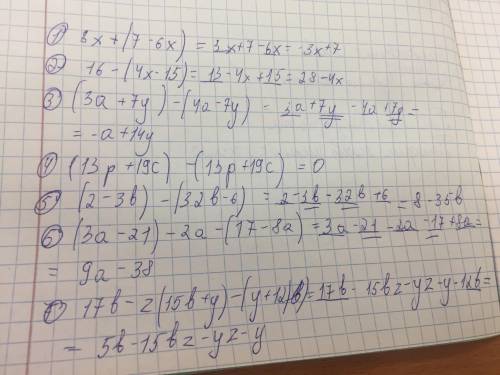 ① 3x + (7 - 6x) = 3x + 7 - 6x = -3x + 7
② 16 - (4x - 15) = 13 - 4x + 15 = 28 - 4x
③ (3a + 7y) - (4a - 7y) = 3a + 7y - 4a + 7y =
= -a + 14y
④ (13p + 19c) - (13p + 19c) = 0
⑤ (2 - 3b) - (32b - 6) = 2 - 3b - 32b + 6 = 8 - 35b
⑥ (3a - 21) - 2a - (17 - 8a) = 3a - 21 - 2a - 17 + 8a =
= 9a - 38
⑦ 17b - z(15b + y) - (y + 12b) = 17b - 15bz - yz - y - 12b =
= 5b - 15bz - yz - y